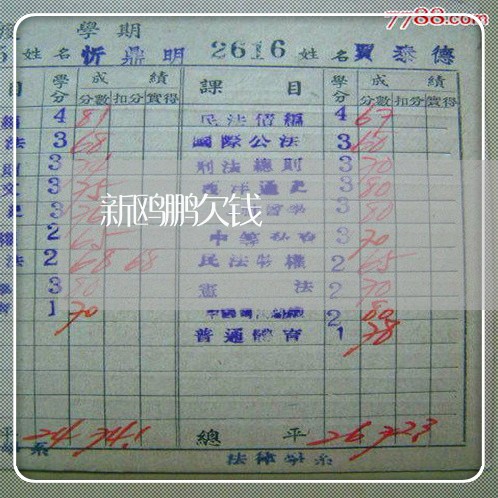 7788.com
學期
姓名 忻鼎明 2616 姓名 賈泰德
目 學分 成績 課目 學分 成績
分數 扣分 實得 分數 扣分 實得
4 81 民法債編 4 67
法 3 68 國際公法 3 60
3 刑法總則 3 70
3 75 西洋通史 3 80
3 3 80
權 2 65 中等 3 70
法 2 68 68 民法物權 2 65
3 80 憲法 2 70
1 70 2 80
普通體育 1 78
新鸥鹏欠钱
平 24 74.1 總平 26 72.3
系 法律學系